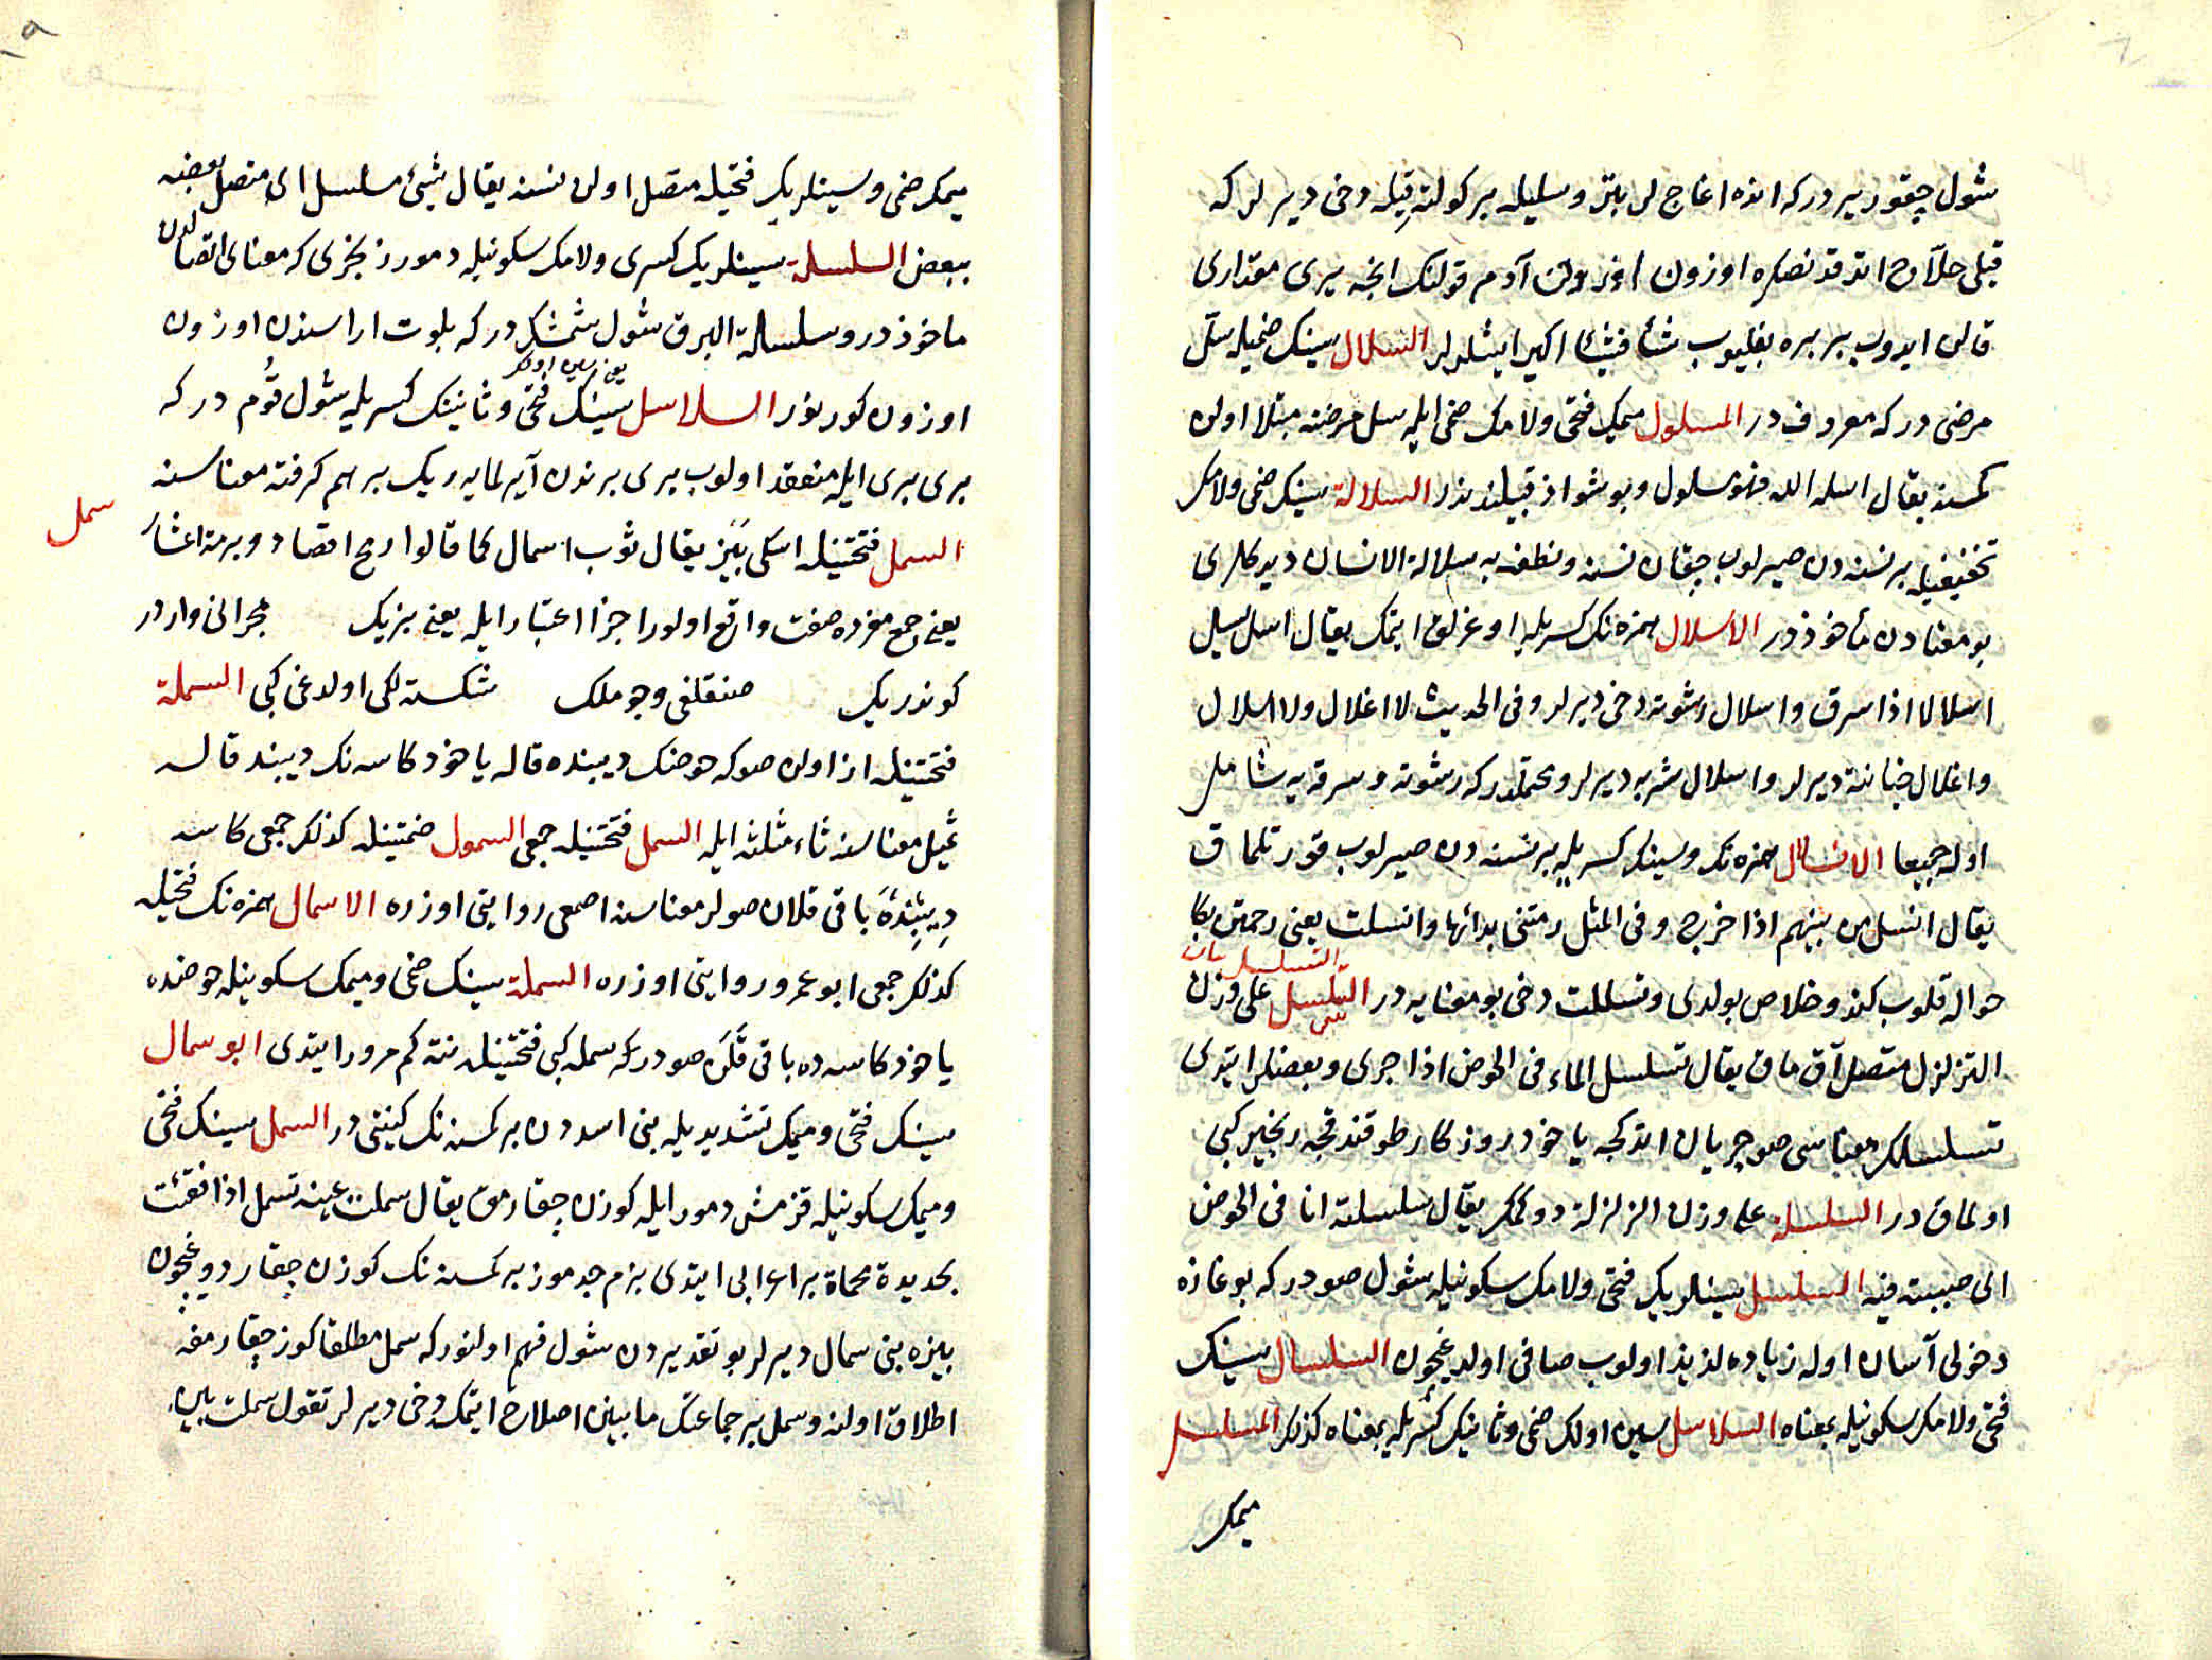 شول چقور یردر که انده اغاج لر بتر و سلیله بر کولته قیله دخی دیرلر که
قیلی حلاج اتدقدنصکره اوزون آدم قولنک انجه یری مقداری
قالن ایدوب بر بره بغلیوب شأ فشیئا اکیر ایشلرلر السلال سینک ضمیله سل
مرضی در که معروف در المسلول میمک فتحی ولامک ضمی ایله سل مرضنه مبتلا اولن
کمسنه یقال اسله الله فهو مسلول وبو شواذ قبیلندندر السلالة سینک ضمی ولامک
تخفیفیله بر نسنه دن صیرلوب چقان نسنه ونطفه یه سلالة الانسان دیدکلری
بو معنادن مأخوذدر الاسلال همزه نک کسریله اوغرلق ایتمک یقال اسل یسل
اسلالا اذا سرق واسلال رشوته دخی دیرلر وفی الحدیث لا اغلال ولا اسلال
واغلال خیانته دیرلر واسلال سرقه یه دیرلر ومحتملدر که رشوته و سرقه یه شامل
اوله جمیعا الانسلال همزه نک وسینک کسریله بر نسنه دن صیرلوب قورتلماق
یقال انسل من بینهم اذا خرج وفی المثل رمتنی بدائها وانسلت یعنی رحمتن بکا
التسلسل یأن
حواله قلوب کندو خلاص بولدی وتسللت دخی بو معنایه در التسلسل علی وزن
التزلزل متصل آق ماق یقال تسلسل الماء فی الحوض اذا جری وبعضلر ایتدی
تسلسلک معناسی صو جریان اتدکجه یاخود روزکار طوقندقجه زنجیر کبی
اولماق در السلسلة علی وزن الزلزلة دوکمک یقال سلسلته انا فی الحوض
ای صببته فیه السلسل سینلریک فتحی ولامک سکونیله شول صودر که بوغازه
دخولی آسان اوله زیاده لذیذ اولوب صافی اولدیغیچون السلسال سینک
فتحی ولامک سکونیله بمعناه السلاسل سین اولک ضمی وثانینک کسریله بمعناه کذلک المسلسل
میمک
میمک ضمی وسینلریک فتحیله متصل اولن نسنه یقال شیئ مسلسل ای متصل بعضه
ببعض السلسلة سینلریک کسری ولامک سکونیله دمور زنجری که معنای اتصالدن
ماخوذدر وسلسلة البرق شول شمشکدر که بلوت اراسندن اوزون
اوزون کورینور السلاسل سینک فتحی وثانینک کسریله شول قوم در که
بری بری ایله منعقد اولوب بری برندن آیرلمایه ریک برهم کرفته معناسنه
سمل
السمل فتحتینله اسکی بیز یقال ثوب اسمال کما قالوا رمح اقصاد وبرمة اعشار
یعنی جمع مفرده صفت واقع اولور اجزا اعتبار ایله یعنی بزیک مجرانی واردر
کوندریک صنقلغی وجوملک شکسته لکی اولدغی کبی السملة
فتحتینله از اولن صو که حوضک دیبنده قاله یاخود کاسه نک دیبنده قاله
ثمیل معناسنه ثاء مثلثه ایله السمل فتحتینله جمعی السمول ضمتینله کذلک جمعی کاسه
دیبنده باقی قلان صولر معناسنه اصمعی روایتی اوزره الاسمال همزه نک فتحیله
کذلک جمعی ابو عمرو روایتی اوزره السملة سینک ضمی ومیمک سکونیله حوضده
یاخود کاسه ده باقی قلن صودر که سمله کبی فتحتینله نته کم مرور ایتدی ابو سمال
سینک فتحی ومیمک تشدیدیله بنی اسددن بر کمسنه نک کنیتی در السمل سینک فتحی
ومیمک سکونیله قزمش دمور ایله کوزن چقارمق یقال سملت عینه تسمل اذا فقئت
بحدیدة محماة بر اعرابی ایتدی بزم جدموز بر کمسنه نک کوزن چقاردوغیچون
بیزه بنی سمال دیرلر بو تقدیردن شول فهم اولنور که سمل مطلقا کوز چقارمغه
اطلاق اولنه وسمل بر جماعتک مابینن اصلاح ایتمک دخی دیرلر تقول سملت بین